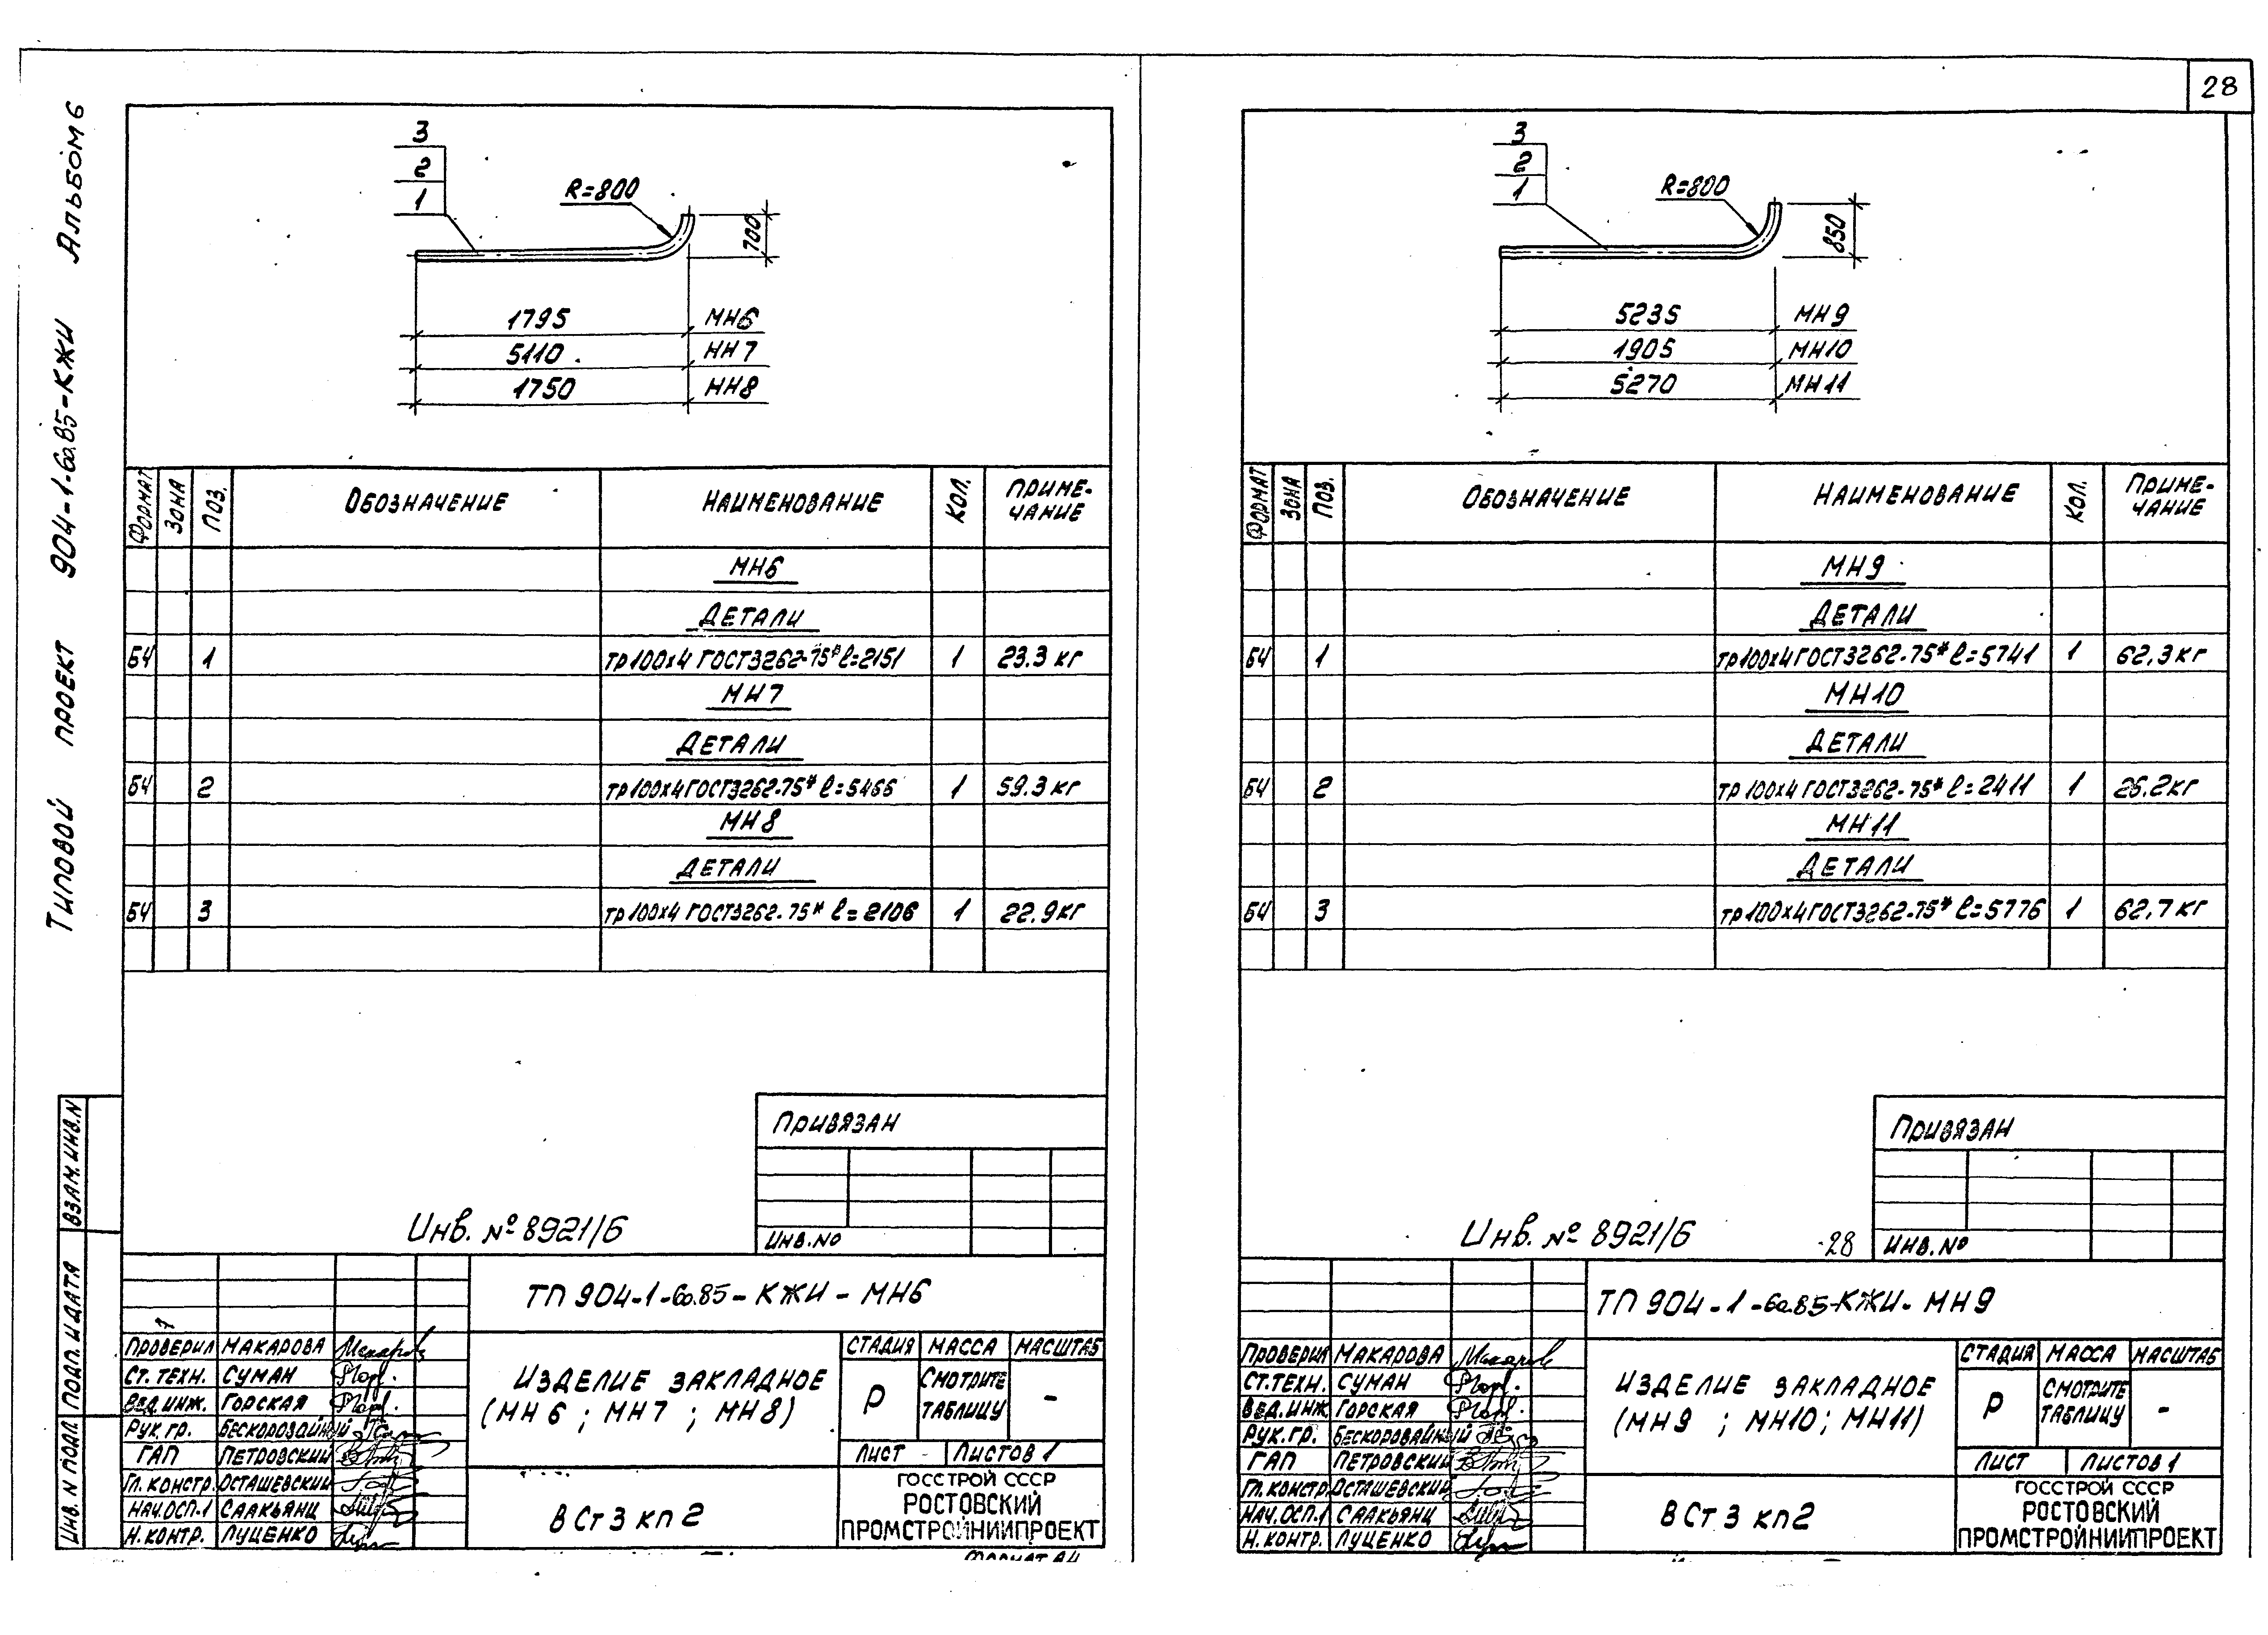 28
Типовой проект 904-1-60.85-КЖИ Альбом 6
3
2
1
R=800
700
1795 МН6
5110 НН7
1750 НН8
Формат Зона Поз. Обозначение Наименование Кол. Приме-
чание
МН6
Детали
БЧ 1 тр 100х4 ГОСТ3262-75* ℓ=2151 1 23.3 кг
МН7
Детали
БЧ 2 тр 100х4 ГОСТ3262-75* ℓ=5466 1 59.3 кг
МН8
Детали
БЧ 3 тр 100х4 ГОСТ3262-75* ℓ=2106 1 22.9 кг
Привязан
Инв. № 8921/6
Инв.№
ТП 904-1-60.85-КЖИ-МН6
Проверил Макарова
Ст. техн. Суман
Вед. инж. Горская
Рук. гр. Бескоровайный
ГАП Петровский
Гл. констр. Осташевский
Нач. ОСП-1 Саакьянц
Н. контр. Луценко
Изделие закладное
(МН6; МН7; МН8)
Стадия Масса Масштаб
Р Смотрите
таблицу -
Лист Листов 1
ВСт3кп2
ГОССТРОЙ СССР
РОСТОВСКИЙ
ПРОМСТРОЙНИИПРОЕКТ
Формат А4
Взам. инв. N
Подп. и дата
Инв. N подл.
3
2
1
R=800
850
5235 МН9
1905 МН10
5270 МН11
Формат Зона Поз. Обозначение Наименование Кол. Приме-
чание
МН9
Детали
БЧ 1 тр 100х4 ГОСТ3262-75* ℓ=5741 1 62.3 кг
МН10
Детали
БЧ 2 тр 100х4 ГОСТ3262-75* ℓ=2411 1 26.2 кг
МН11
Детали
БЧ 3 тр 100х4 ГОСТ3262-75* ℓ=5776 1 62.7 кг
Привязан
Инв. № 8921/6 28 Инв.№
ТП 904-1-60.85-КЖИ-МН9
Проверил Макарова
Ст. техн. Суман
Вед. инж. Горская
Рук. гр. Бескоровайный
ГАП Петровский
Гл. констр. Осташевский
Нач. ОСП-1 Саакьянц
Н. контр. Луценко
Изделие закладное
(МН9; МН10; МН11)
Стадия Масса Масштаб
Р Смотрите
таблицу -
Лист Листов 1
ВСт3кп2
ГОССТРОЙ СССР
РОСТОВСКИЙ
ПРОМСТРОЙНИИПРОЕКТ